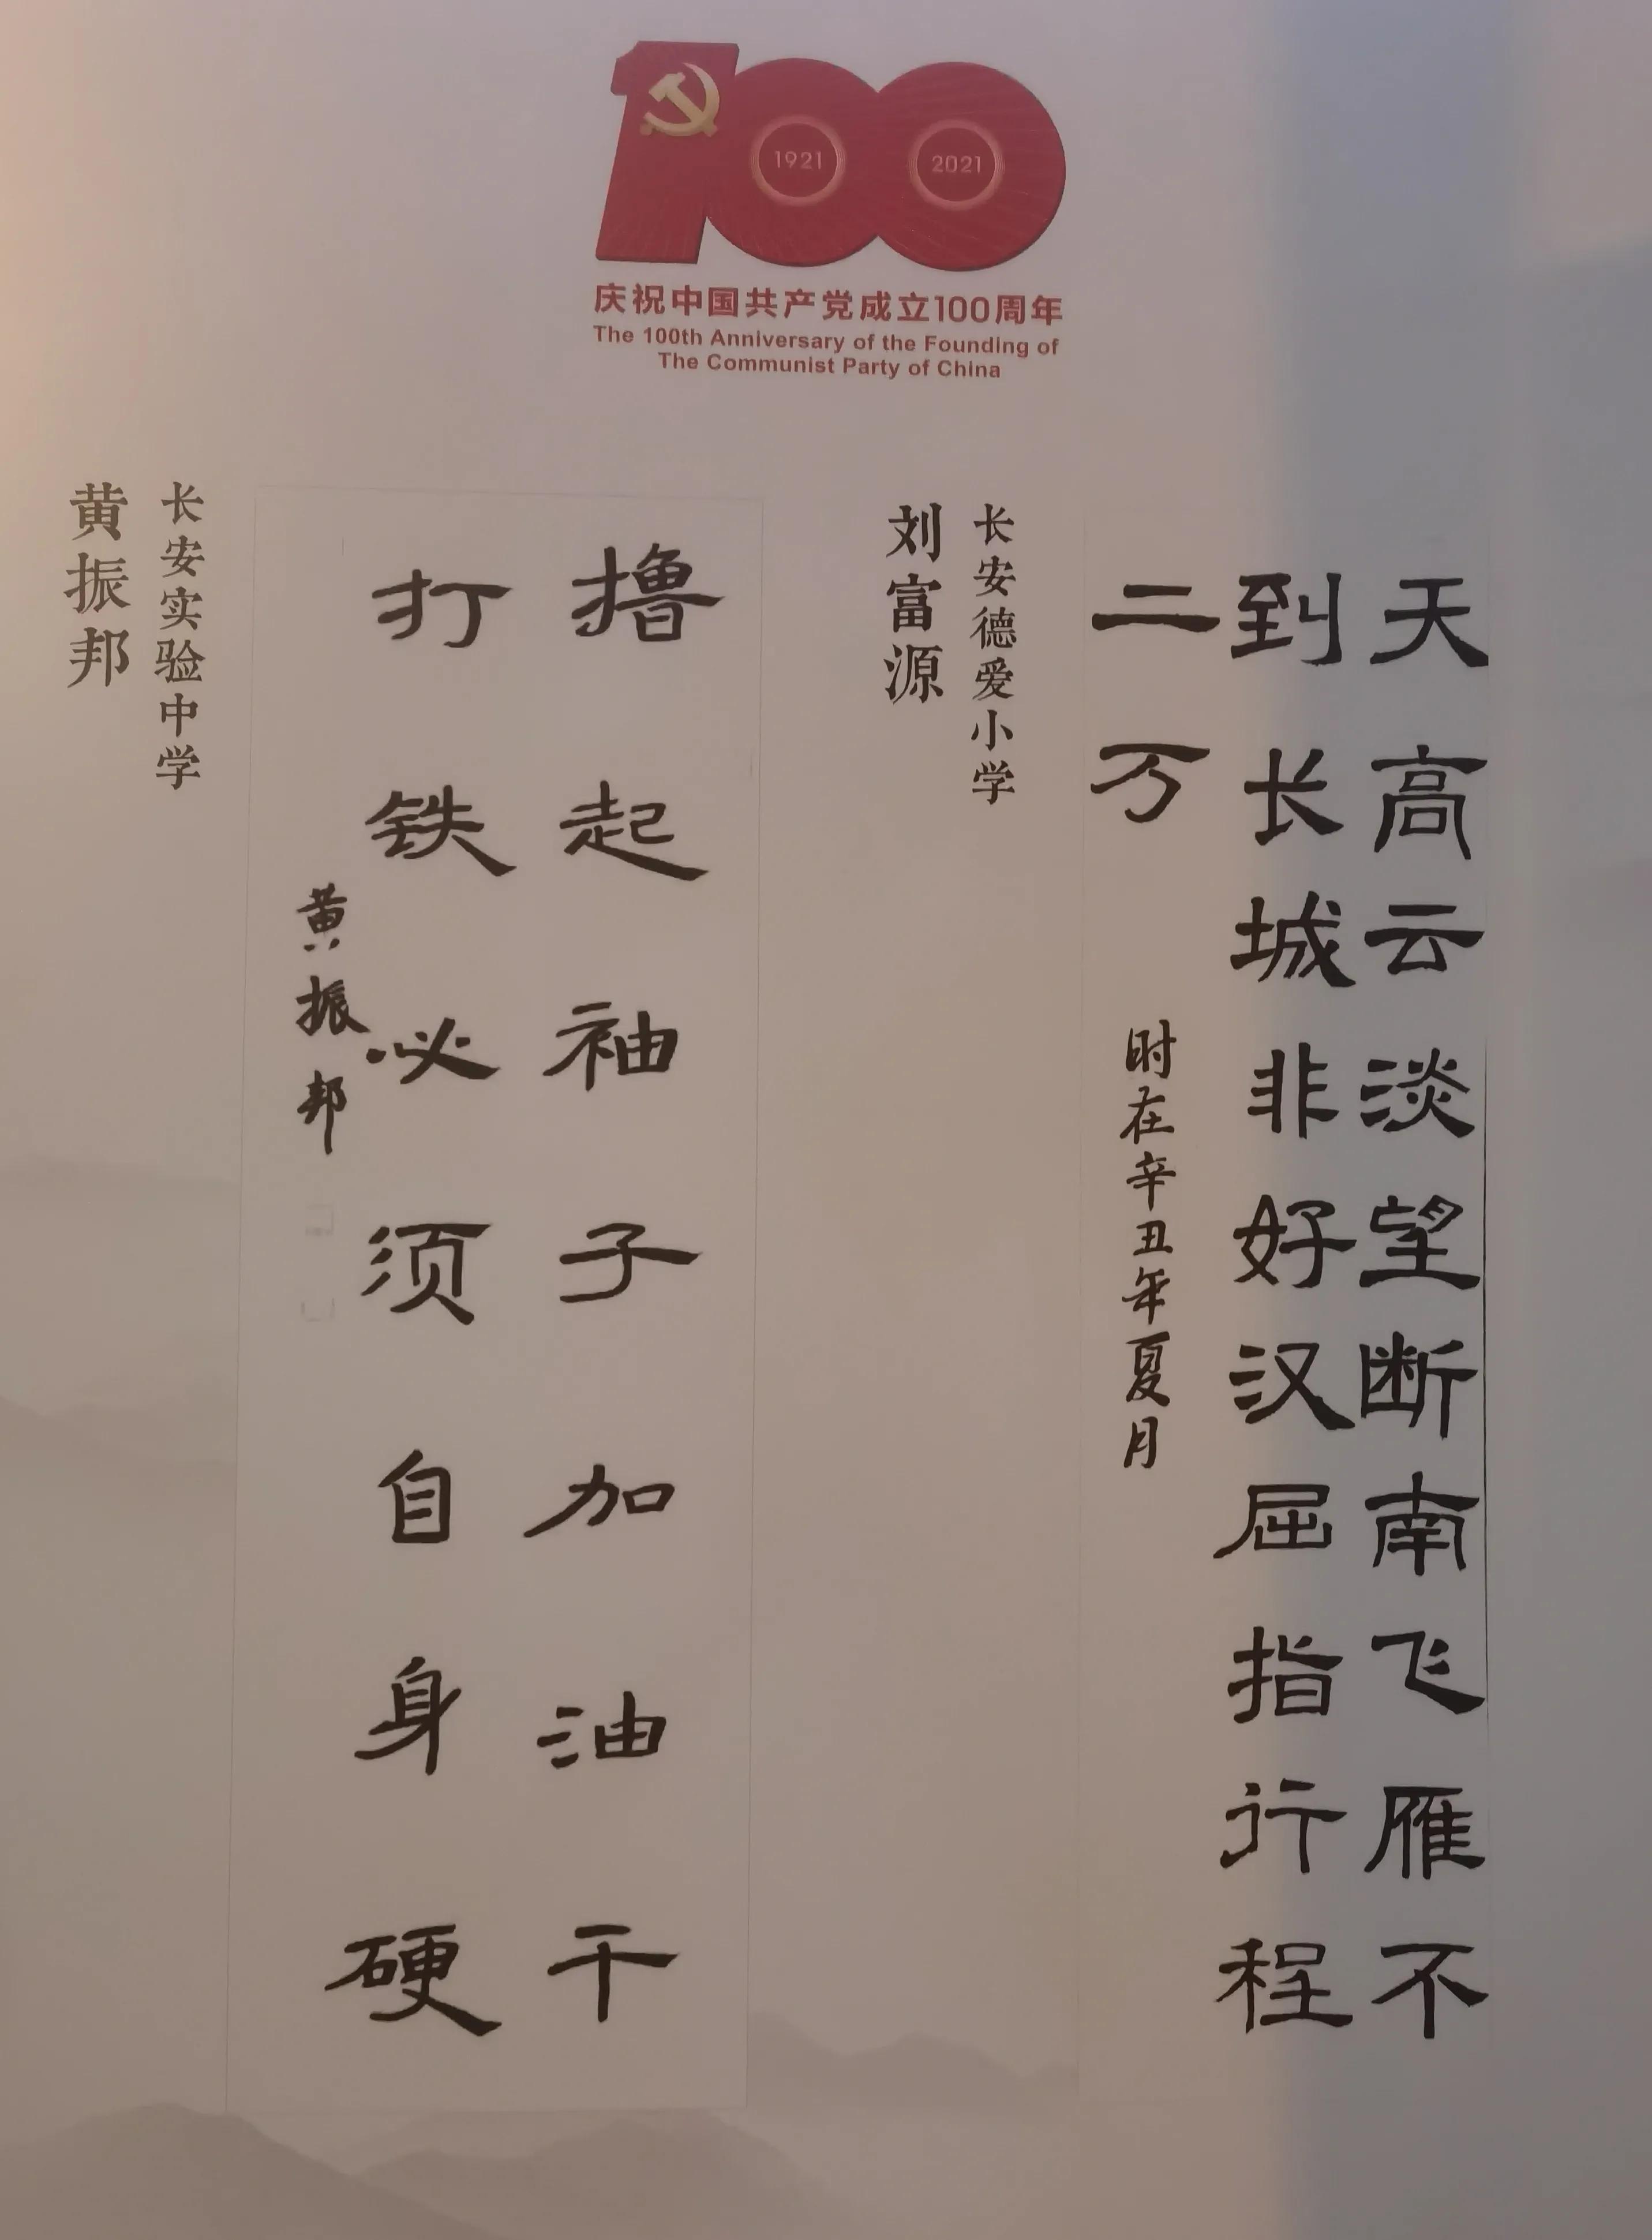 1921
2021
庆祝中国共产党成立100周年
The 100th Anniversary of the Founding of
The Communist Party of China
天高云淡望断南飞雁不
到长城非好汉屈指行程
二万
时在辛丑年夏月
长安德爱小学
刘富源
撸起袖子加油干
打铁必须自身硬
黄振邦
长安实验中学
黄振邦